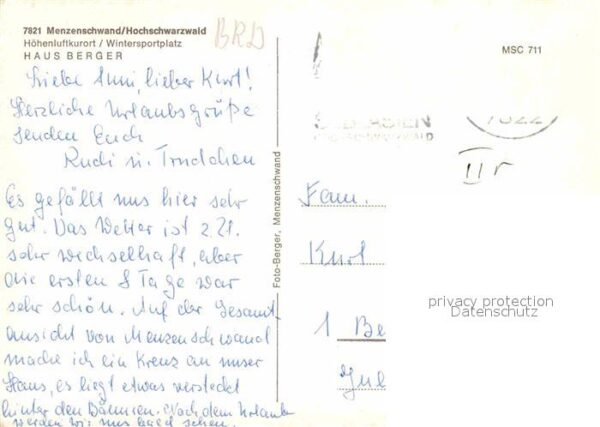 7821 Menzenschwand/Hochschwarzwald
Höhenluftkurort / Wintersportplatz
HAUS BERGER
BRD
MSC 711
Liebe Anni, lieber Kurt!
Herzliche Urlaubsgrüße
senden Euch
Rudi u. Trudchen
Es gefällt uns hier sehr
gut. Das Wetter ist z.Zt.
sehr wechselhaft, aber
die ersten 8 Tage war
sehr schön. Auf der Gesamt
ansicht von Menzenschwand
mache ich ein Kreuz an unser
Haus, es liegt etwas versteckt
hinter den Bäumen. Nach dem Urlaub
werden wir uns bald sehen.
Foto-Berger, Menzenschwand
7822
II r
Fam.
Kurt
1 Be
privacy protection
Datenschutz